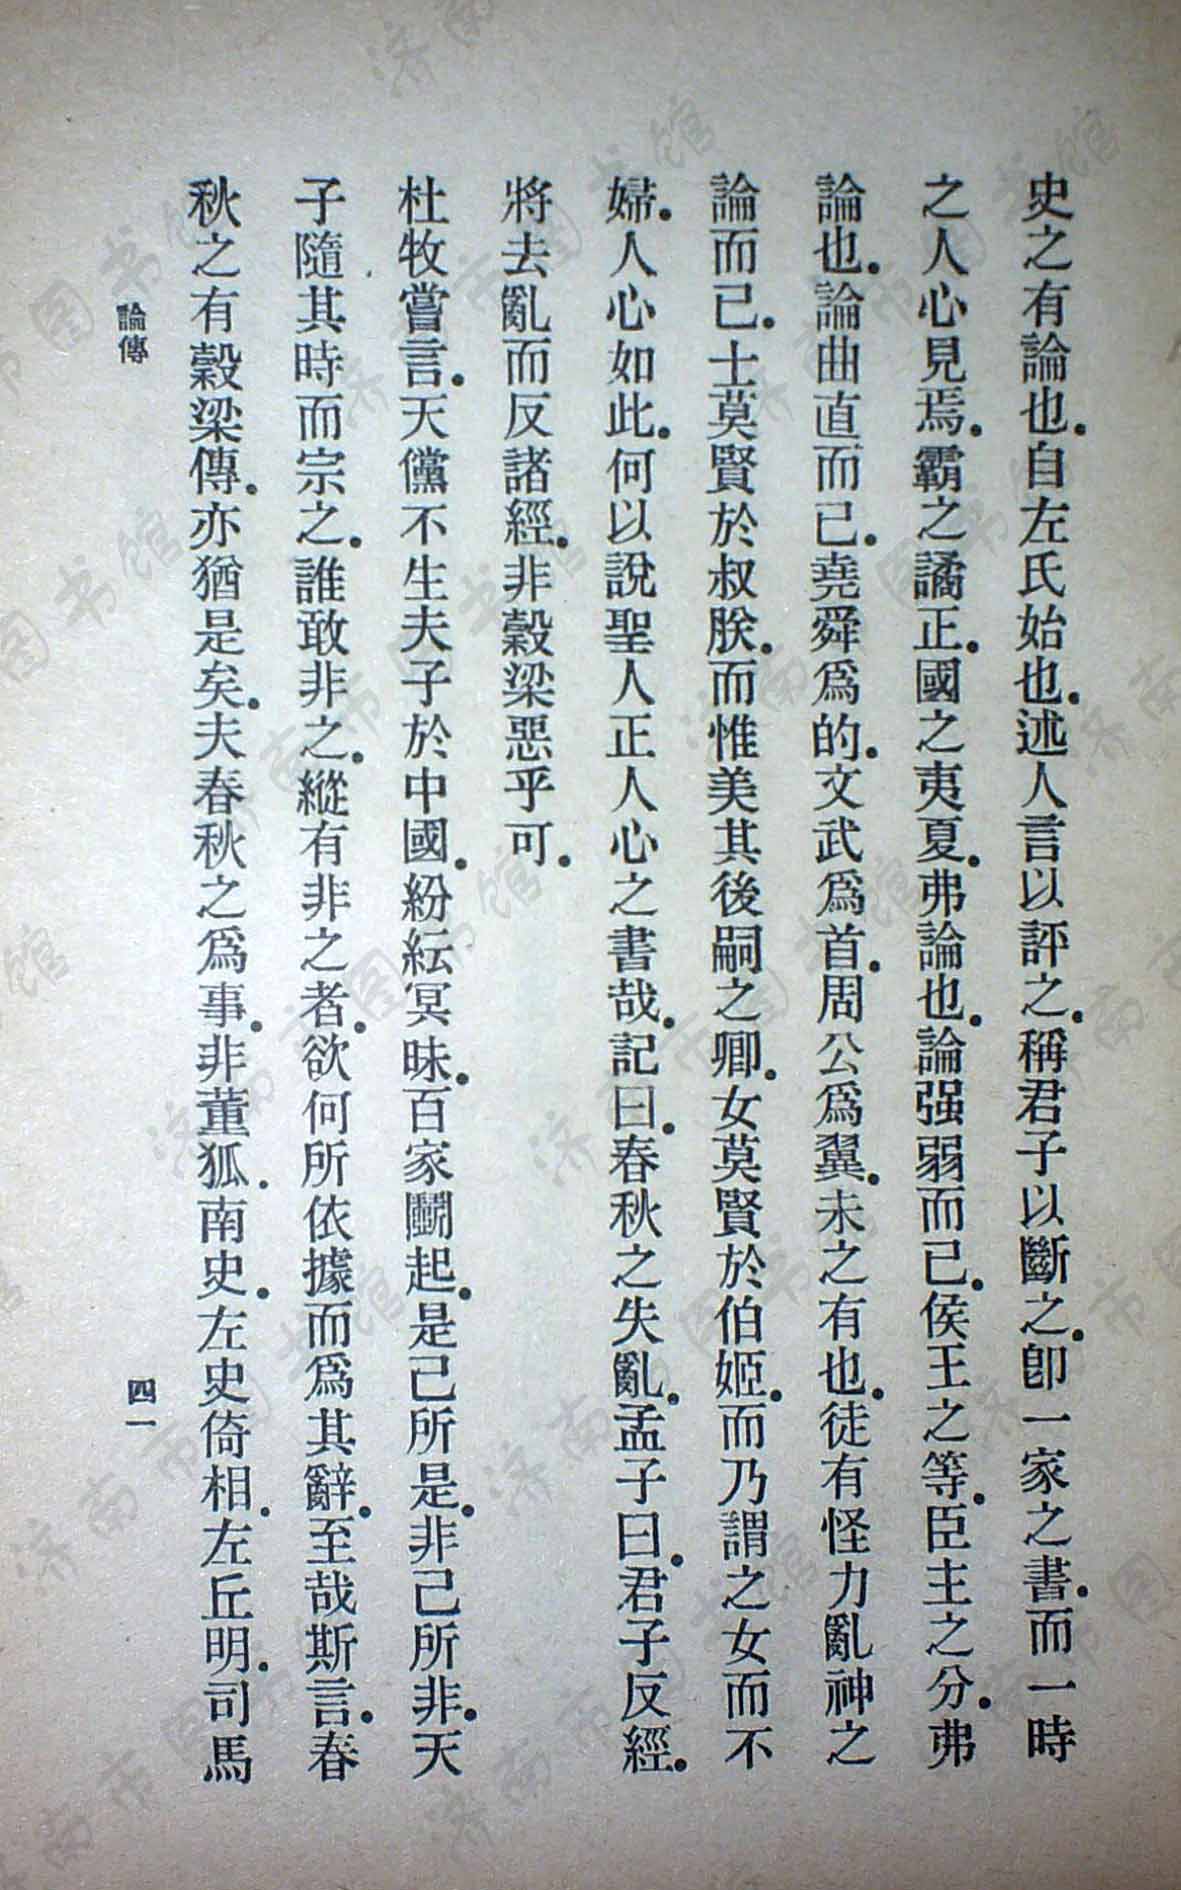 史之有論也.自左氏始也.述人言以評之.稱君子以斷之.卽一家之書.而一時
之人心見焉.霸之譎正.國之夷夏.弗論也.論强弱而已.侯王之等.臣主之分.弗
論也.論曲直而已.堯舜爲的.文武爲首.周公爲翼.未之有也.徒有怪力亂神之
論而已.士莫賢於叔肸.而惟美其後嗣之卿.女莫賢於伯姬.而乃謂之女而不
婦.人心如此.何以說聖人正人心之書哉.記曰.春秋之失亂.孟子曰.君子反經.
將去亂而反諸經.非穀梁惡乎可.
杜牧嘗言.天儻不生夫子於中國.紛紜冥昧.百家鬭起.是己所是.非己所非.天
子隨其時而宗之.誰敢非之.縱有非之者.欲何所依據而爲其辭.至哉斯言.春
秋之有穀梁傳.亦猶是矣.夫春秋之爲事.非董狐.南史.左史倚相.左丘明.司馬
論傳
四一
济南市图书馆